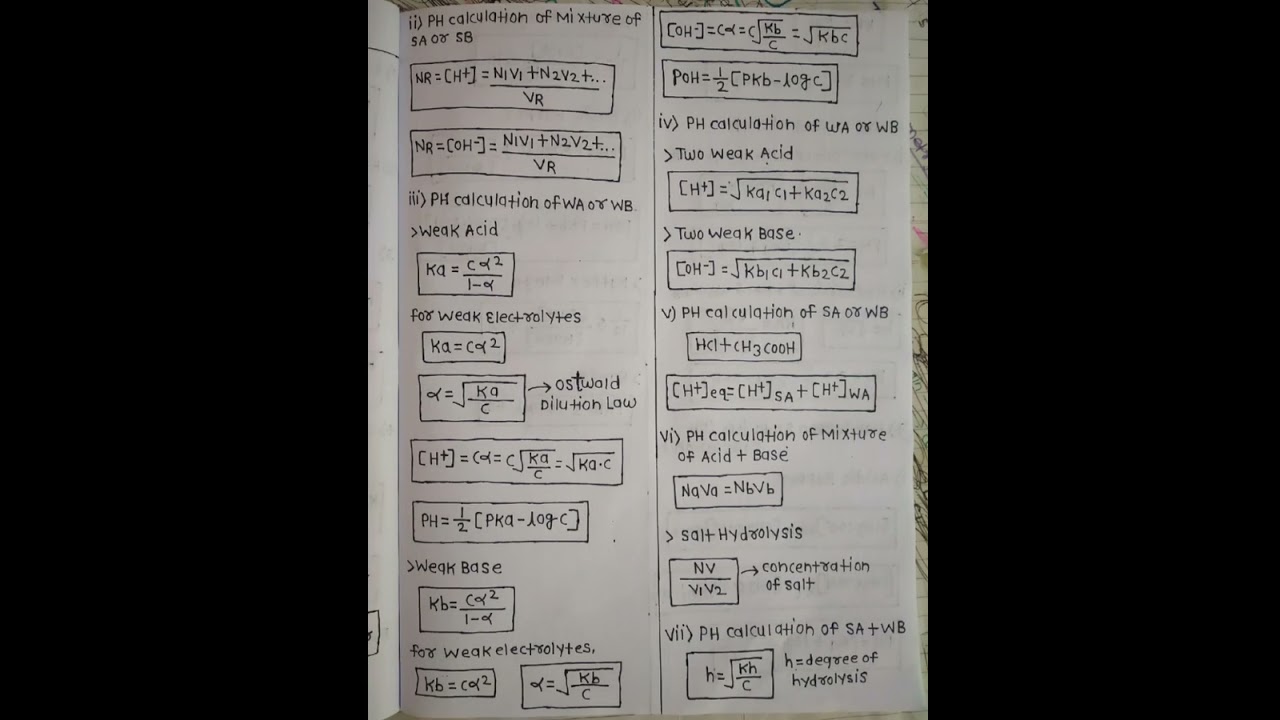 ii) PH calculation of Mixture of
SA or SB
NR = [H+] = N1V1 + N2V2 +... / VR
NR = [OH-] = N1V1 + N2V2 +... / VR
iii) PH calculation of WA or WB.
>Weak Acid
Ka = Cα² / 1-α
for Weak Electrolytes
Ka = Cα²
α = √Ka/C → Ostwald
Dilution Law
[H+] = Cα = C√Ka/C = √Ka·C
PH = 1/2 [PKa - log C]
>Weak Base
Kb = Cα² / 1-α
for weak electrolytes,
Kb = Cα² α = √Kb/C
[OH-] = Cα = C√Kb/C = √KbC
POH = 1/2 [PKb - log C]
iv) PH calculation of WA or WB
>Two Weak Acid
[H+] = √Ka1C1 + Ka2C2
>Two Weak Base.
[OH-] = √Kb1C1 + Kb2C2
v) PH calculation of SA or WB
HCl + CH3COOH
[H+]eq = [H+]SA + [H+]WA
vi) PH calculation of Mixture
of Acid + Base
NaVa = NbVb
> Salt Hydrolysis
NV / V1V2 → concentration
of salt
vii) PH calculation of SA + WB
h = √Kh/C h = degree of
hydrolysis